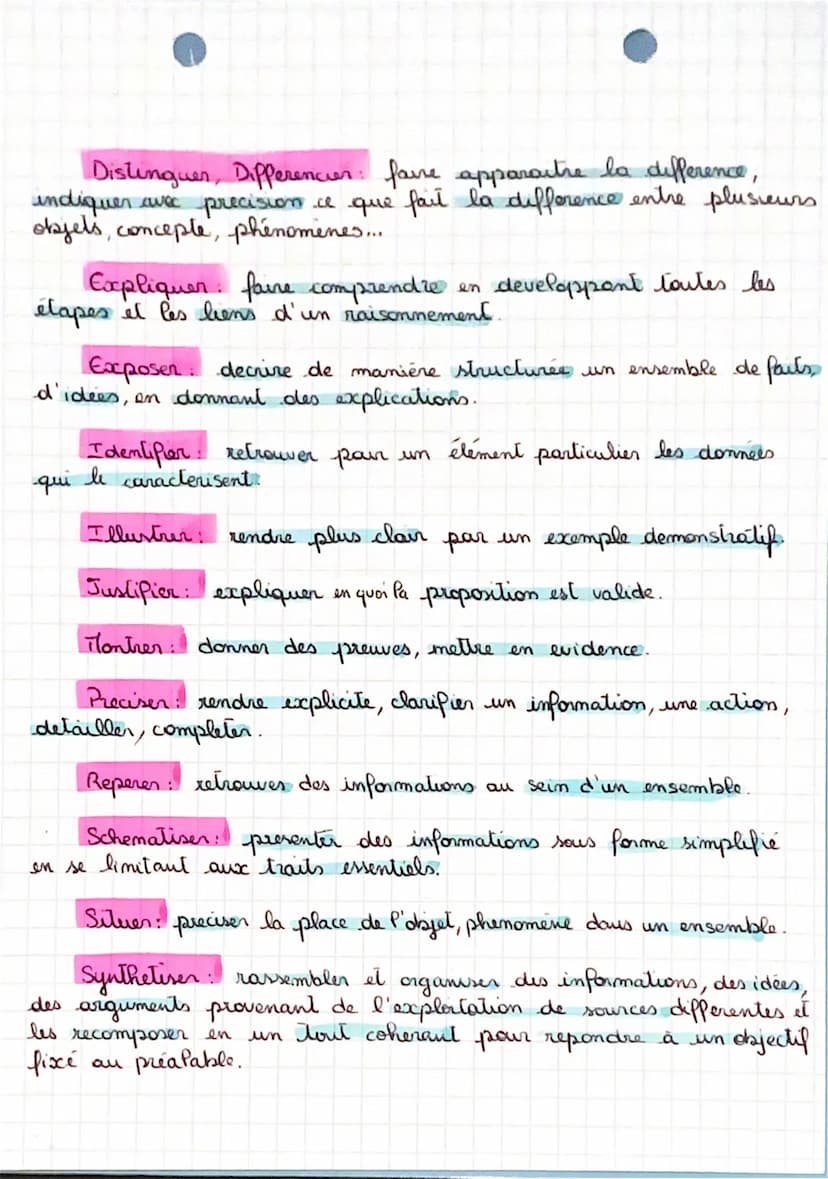 Distinguer, Differencier : faire apparaitre la difference,
indiquer avec precision ce que fait la difference entre plusieurs
objets, concepte, phénomènes...
Expliquer : faire comprendre en developpant toutes les
étapes et les liens d'un raisonnement.
Exposer : decrire de manière structurée un ensemble de faits,
d'idées, en donnant des explications.
Identifier : retrouver pour un élément particulier les données
qui le caracterisent.
Illustrer : rendre plus clair par un exemple demonstratif.
Justifier : expliquer en quoi la proposition est valide.
Montrer : donner des preuves, mettre en evidence.
Preciser : rendre explicite, clarifier un information, une action,
detailler, completer.
Reperer : retrouves des informations au sein d'un ensemble.
Schematiser : presenter des informations sous forme simplifié
en se limitant aux traits essentiels.
Situer : preciser la place de l'objet, phenomène dans un ensemble.
Synthetiser : rassembler et organiser des informations, des idées,
des arguments provenant de l'exploitation de sources differentes et
les recomposer en un tout coherant pour repondre à un objectif
fixé au préalable.